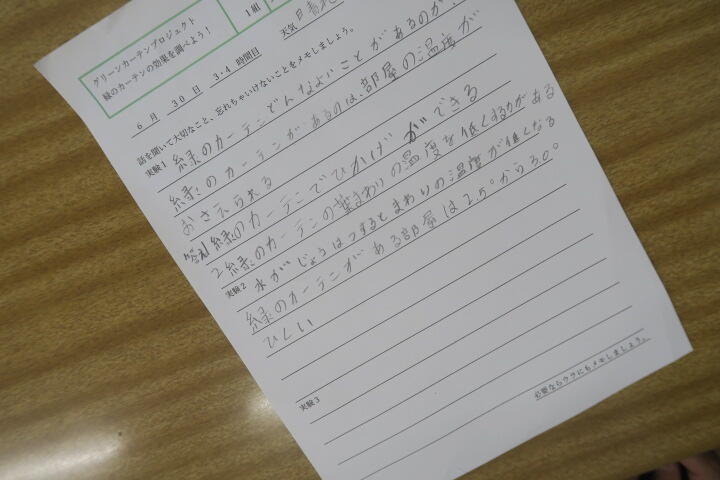 グリーンカーテンプロジェクト
緑のカーテンの効果を調べよう！
1組
6月 30日 3・4時間目 天気
話を聞いて大切なこと、忘れちゃいけないことをメモしましょう。
実験1 緑のカーテンでどんなよいことがあるのか、
緑のカーテンがあるのは、部屋の温度が
おさえられる
答え1 緑のカーテンでひかげができる
2 緑のカーテンの葉まわりの温度を低くする力がある
実験2 水がじょうはつするとまわりの温度が低くなる
緑のカーテンがある部屋は2.5°から30°
ひくい
実験3
必要ならウラにもメモしましょう。